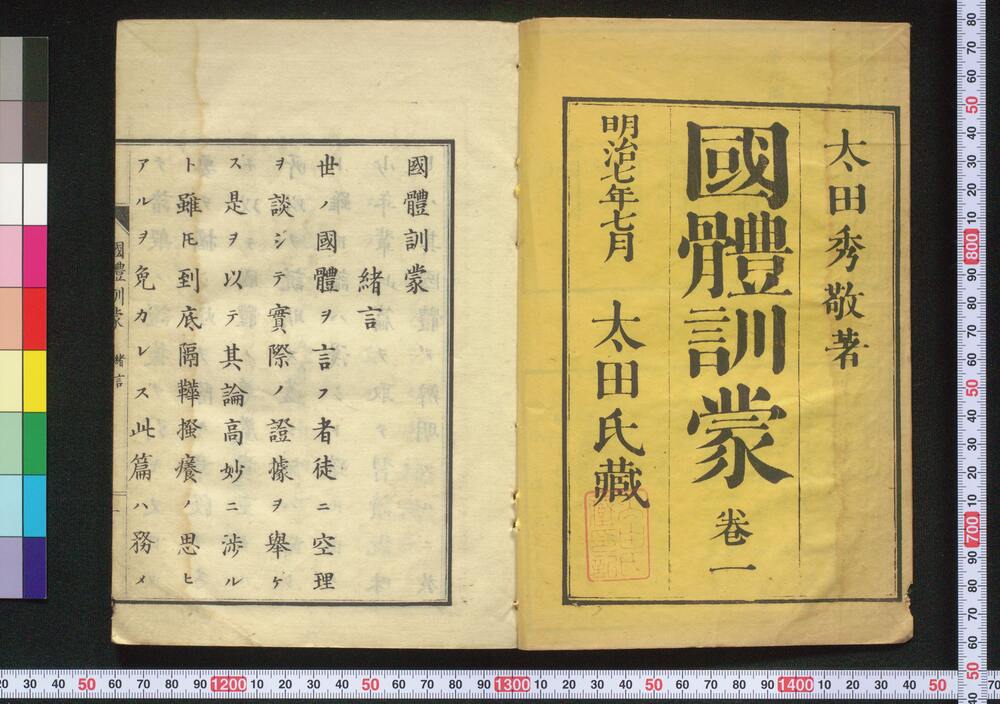 太田秀敬著
國體訓蒙 卷一
明治七年七月 太田氏藏
國體訓蒙
緒言
世ノ國體ヲ言フ者徒ニ空理
ヲ談シテ實際ノ證據ヲ舉ケ
ス是ヲ以テ其論高妙ニ渉ル
ト雖𪜈到底隔鞾搔癢ノ思ヒ
アルヲ免カレス此篇ハ務メ
國體訓蒙 緒言
一
20 30 40 50 60 70 80 90 1200 10 20 30 40 50 60 70 80 90 1300 10 20 30 40 50 60 70 80 90 1400 10 20 30 40 50
80 70 60 50 40 30 20 10 800 90 80 70 60 50 40 30 20 10 700 90 80 70 60 50 40